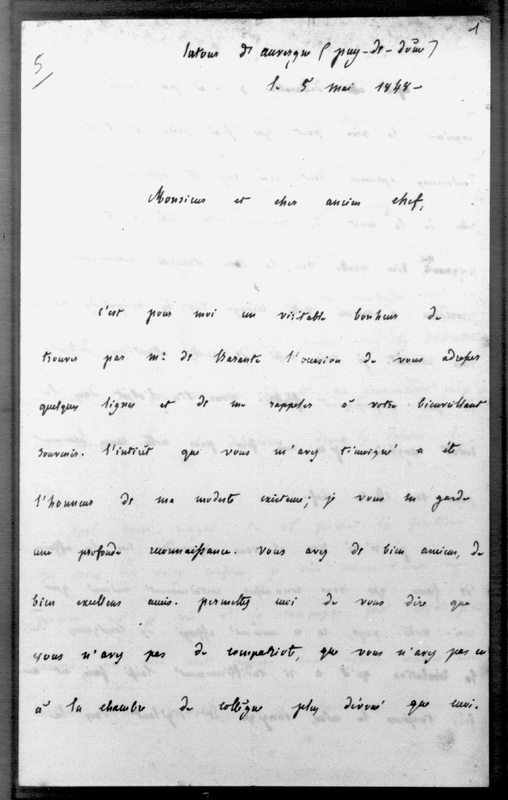 1
5
Latour d'auvergne (puy-de-dôme)
le 5 mai 1848-
Monsieur et cher ancien chef,
c'est pour moi un véritable bonheur de
trouver par mr. de Barante l'occasion de vous adresser
quelques lignes et de me rappeler à votre bienveillant
souvenir. l'intérêt que vous m'avez témoigné a été
l'honneur de ma modeste existence; je vous en garde
une profonde reconnaissance. vous avez de bien anciens, de
bien excellens amis. permettez moi de vous dire que
vous n'avez pas de compatriote, que vous n'avez pas eu
à la chambre de collègue plus dévoué que moi.